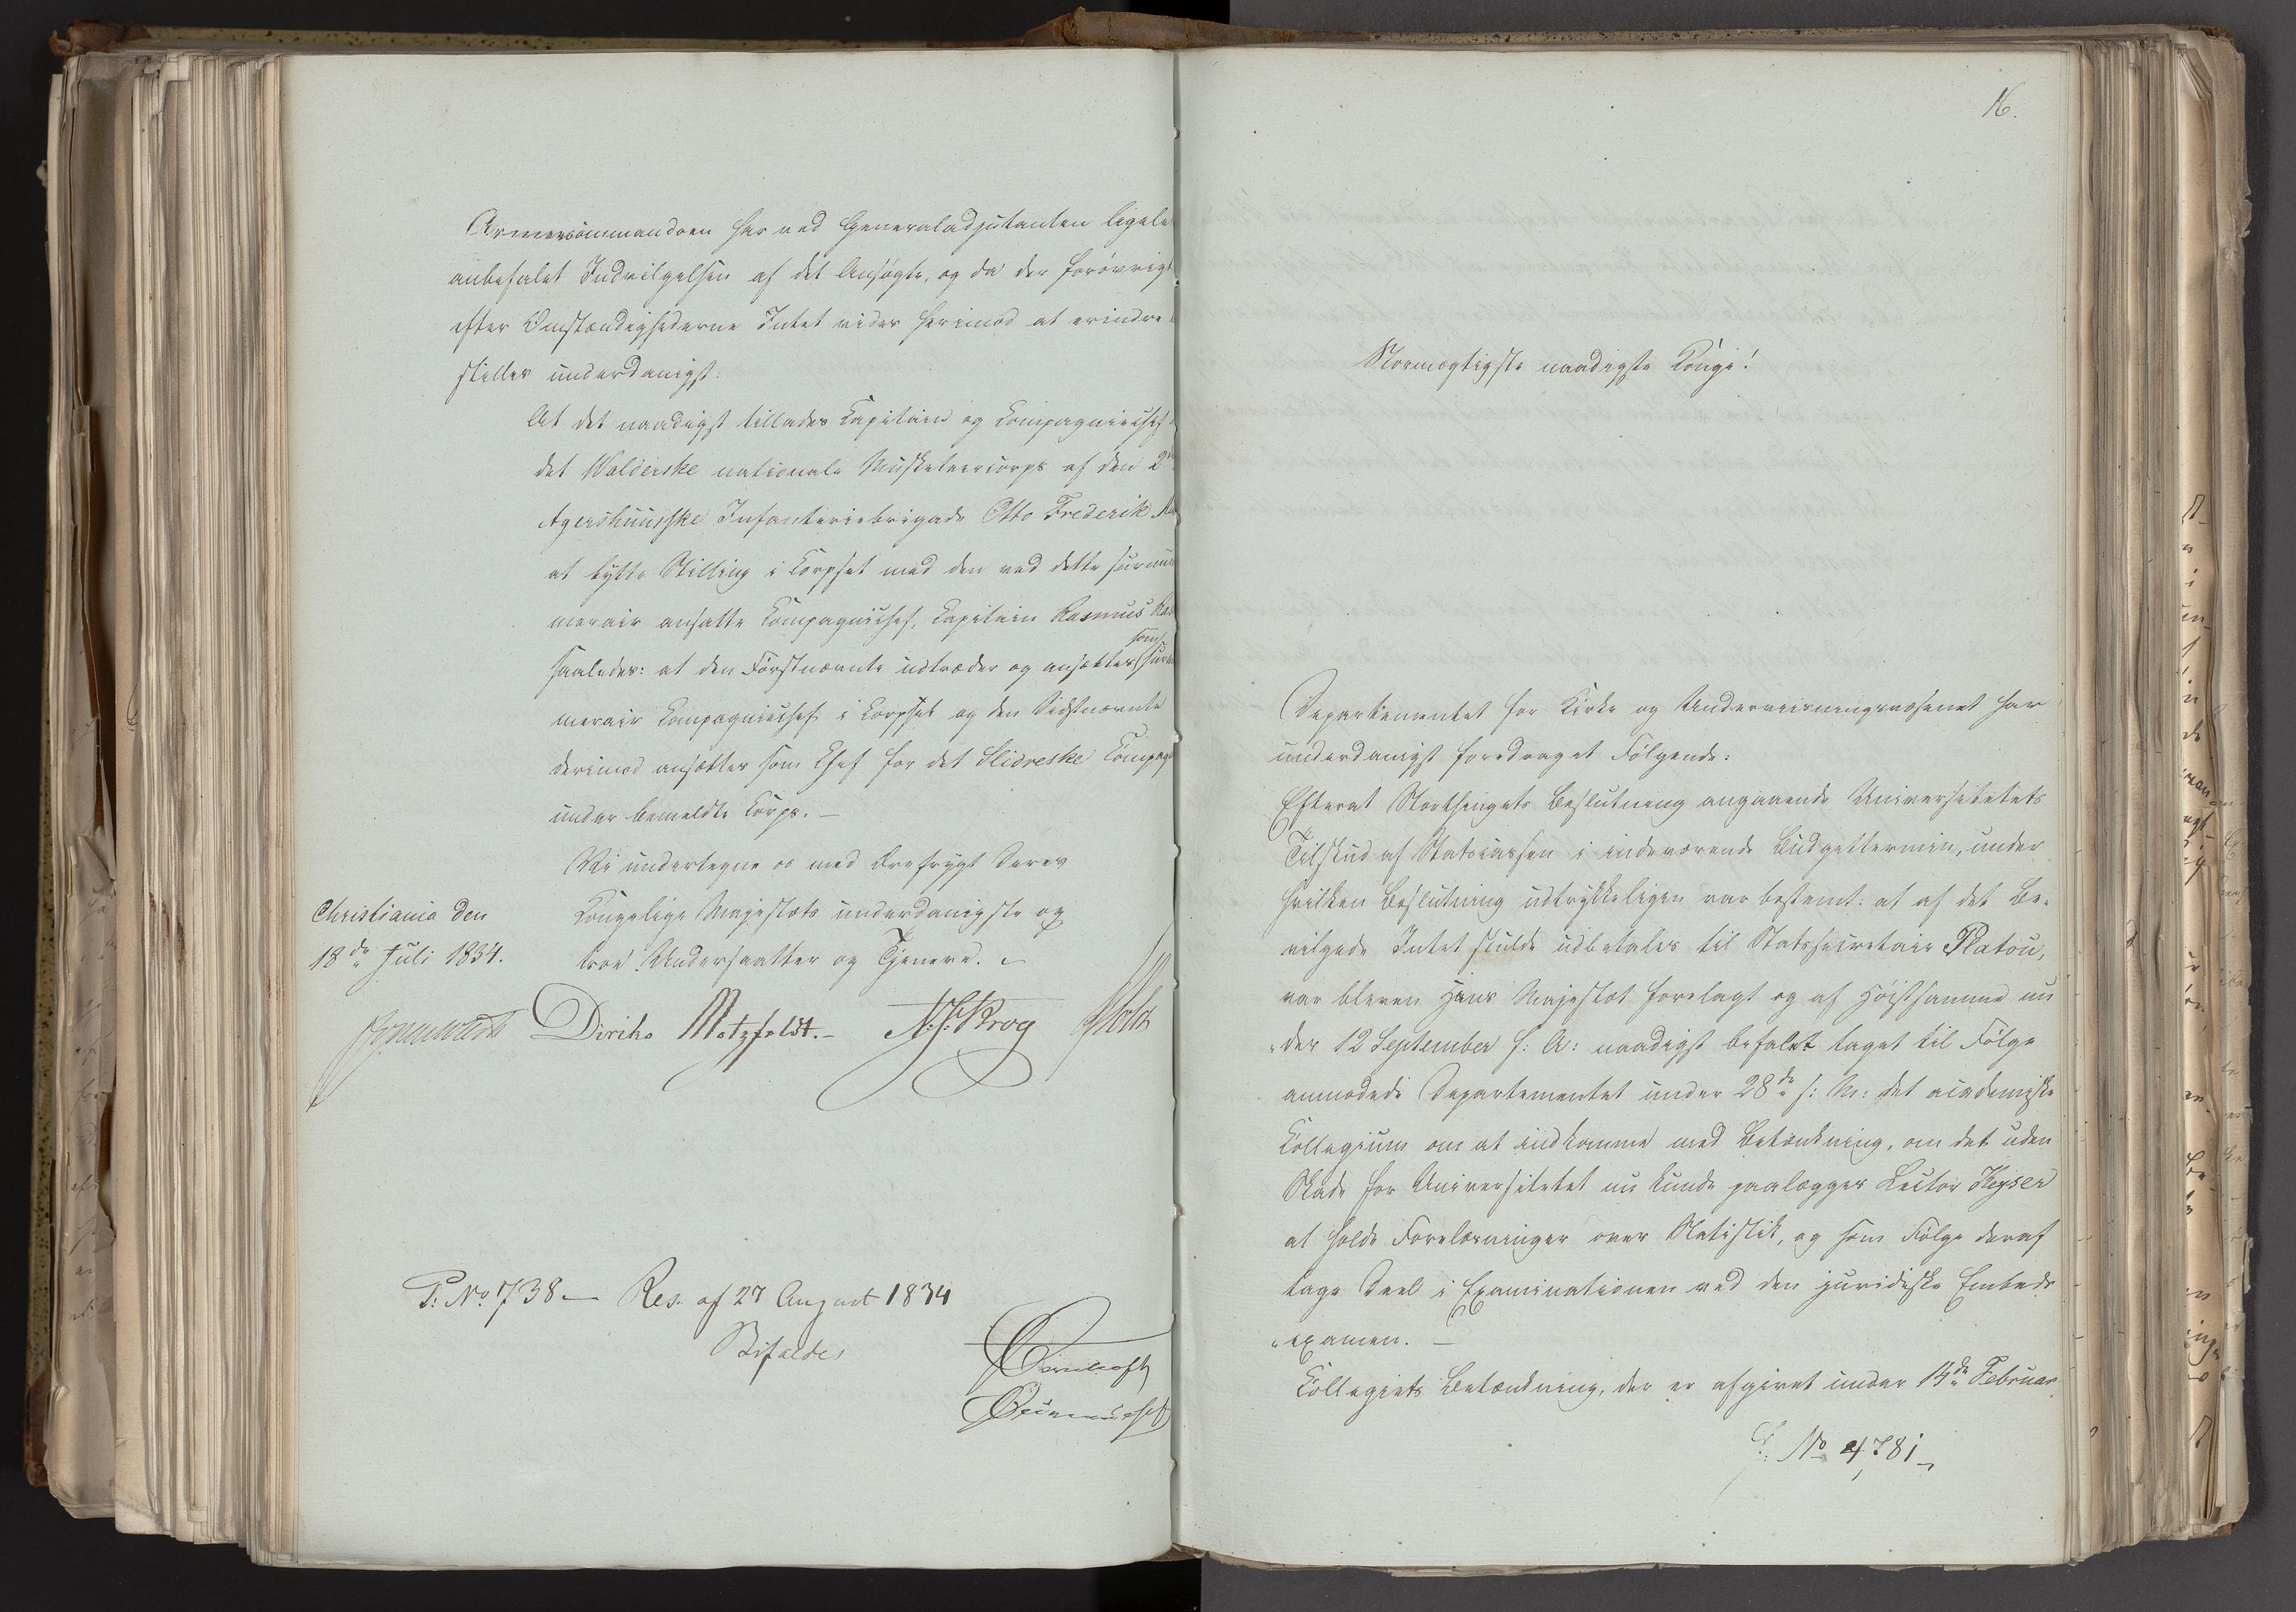 Armeecommandoen har ved Generaladjutanten ligele
anbefalet Indvilgelsen af det Ansøgte, og da der forøvrigt
efter Omstændighederne Intet vides herimod at erindre
stilles underdanigst:
At det naadigst tillades Capitain og Compagniechef
det Walderske nationale Musketeercorps af den 2den
Agershuusske Infanteriebrigade Otto Frederik
at bytte Stilling i Corpset med den ved dette surnu
merair ansatte Compagniechef, Capitain Rasmus
saaledes: at den Førstnævnte udtræder og ansættes som surnu
merair Compagniechef i Corpset og den Sidstnævnte
derimod ansættes som Chef for det Slidreske Compag
under bemeldte Corps. —
Vi undertegne os med Ærefrygt Deres
Christiania den Kongelige Majestæts underdanigste og
18de Juli 1834. troe Undersaatter og Tjenere.
Diriks Motzfeldt.— N. J. Krog Holst
P: No. 738 — Res. af 27 August 1834
Bifaldes
16.
Stormægtigste naadigste Konge!
Departementet for Kirke og Underviisningsvæsenet har
underdanigst foredraget Følgende:
Efterat Storthingets Beslutning angaaende Universitetets
Tilskud af Statscassen i indeværende Budgettermin, under
hvilken Beslutning udtrykkeligen var bestemt: at af det Be-
vilgede Intet skulde udbetales til Statssecretair Platou,
var bleven Hans Majestæt forelagt og af Høistsamme un
"der 12 September f: A: naadigst befalet taget til Følge
anmodede Departementet under 28de s: M: det academiske
Collegium om at indkomme med Betænkning, om det uden
Skade for Universitetet nu kunde paalægges Lector Keyser
at holde Forelæsninger over Statistik, og som Følge deraf
tage Deel i Examinationen ved den juridiske Embeds
"examen. —
Collegiets Betænkning, der er afgivet under 14de Februar
J: No 4781